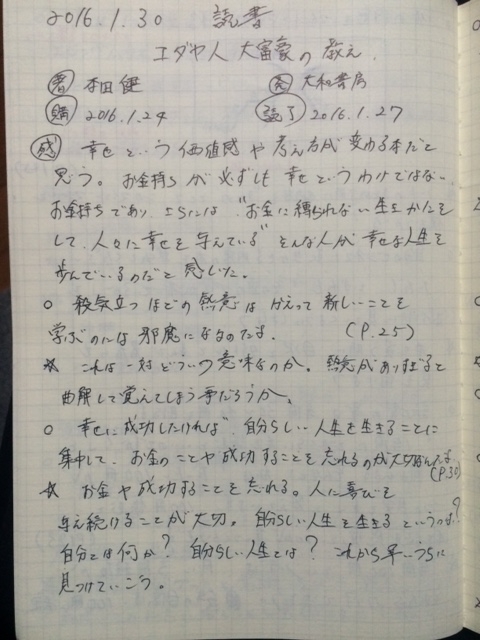 2016.1.30 読書
ユダヤ人大富豪の教え
著 本田健 出 大和書房
購 2016.1.24 読了 2016.1.27
感 幸せという価値感や考え方が変わる本だと
思う。お金持ちが必ずしも幸せというわけではない。
お金持ちであり、さらには"お金に縛られない生きかたを
して、人々に幸せを与えている"そんな人が幸せな人生を
歩んでいるのだと感じた。
○ 殺気立つほどの熱意はかえって新しいことを
学ぶのには邪魔になるのだよ。 (P.25)
☆ これは一体どういう意味なのか。熱意がありすぎると
曲解して覚えてしまう事だろうか。
○ 幸せに成功したければ、自分らしい人生を生きることに
集中して、お金のことや成功することを忘れるのが大切なんだよ
(P.30)
☆ お金や成功することを忘れる。人に喜びを
与え続けることが大切。自分らしい人生を生きるというのは?
自分とは何か?自分らしい人生とは?これから早いうちに
見つけていこう。